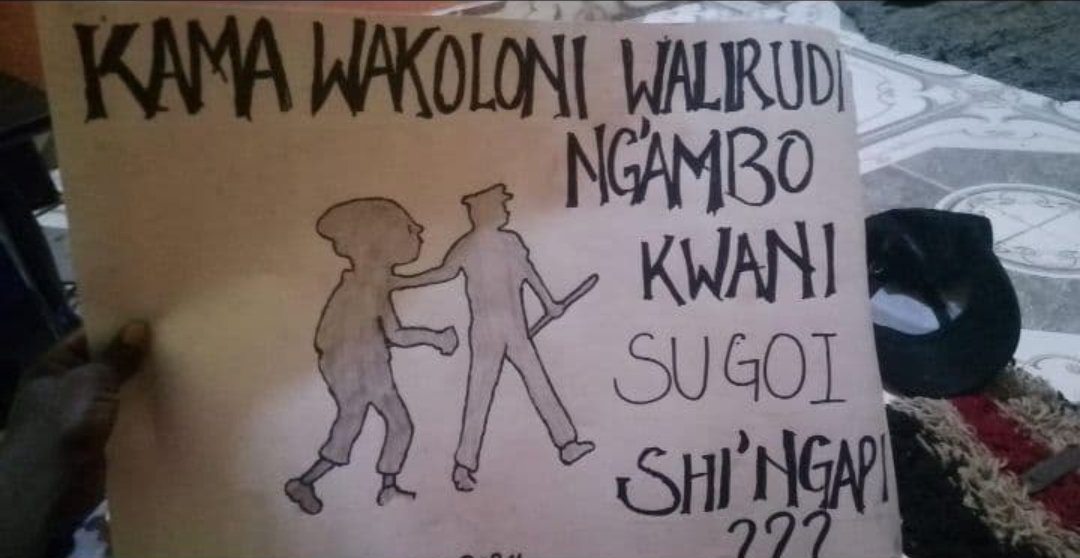 KAMA WAKOLONI WALIRUDI
NG'AMBO
KWANI
SUGOI
SHI'NGAPI
???